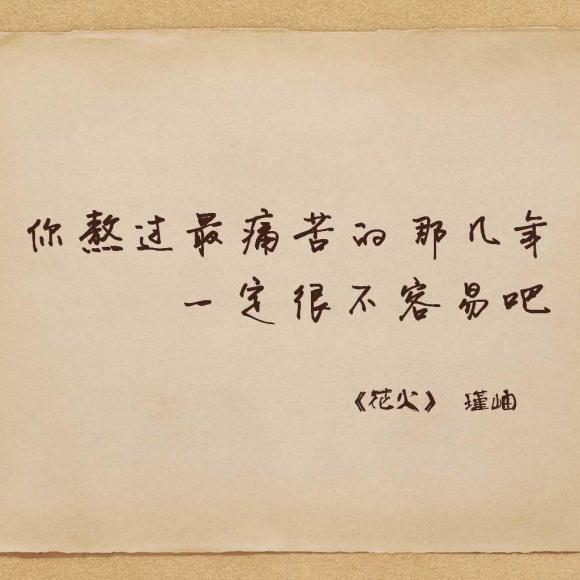 你熬过最痛苦的那几年
一定很不容易吧
《花火》 瑾岫